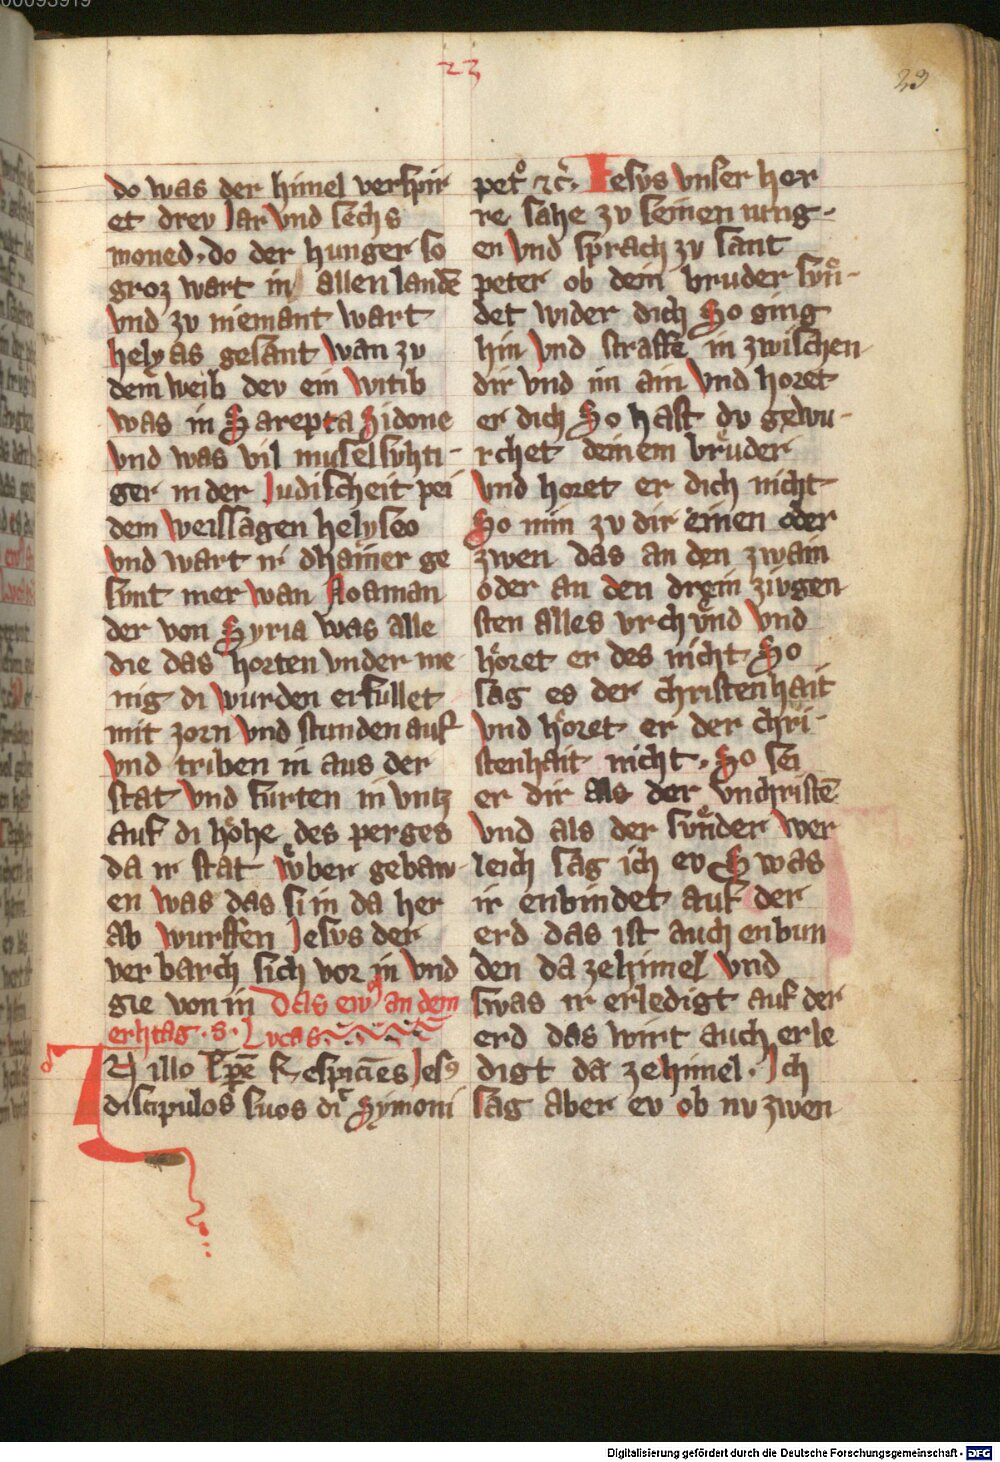 00093919
23
23
do was der himel verspir
et drev Jar vnd sechs
moned · do der hunger so
groz wart in allen landē
vnd zv niemant wart
helyas gesant wan zv
dem weib dev ein witib
was in Sarepta Sidone
vnd was vil mvselsvhti-
ger in der Judischeit pei
dem weissagen helyseo
vnd wart ir dhainer ge
svnt mer wan Noaman
der von Syria was alle
die das horten vnder me
nig di wurden erfullet
mit zorn vnd stunden auf
vnd triben in aus der
stat vnd furten in vntz
auf di höhe des perges
da ir stat vͤber gebaw-
en was das si in da her
ab wurffen Jesvs der
verbarch sich vor in vnd
gie von in Das ew͛ an dem
erhtag · S · Lvcas
In illo tp̄e Respiciēs Jesꝰ
discipulos suos di͛ Symoni
pet͛ ⁊c͛. Jesvs vnser her
re sahe zv seinen iung-
en vnd sprach zv sant
peter ob dem bruder svn-
det wider dich So ging
hin vnd straffe in zwischen
dir vnd im ain vnd horet
er dich So hast dv gewu-
rchet deinem brůder
vnd horet er dich nicht
So nim zv dir einen oder
zwen das an den zwain
oder an den drein zivgen
sten alles vrchünd vnd
höret er des nicht So
sag es der christenhait
vnd höret er der chri-
stenhait nicht · So sei
er dir als der vnchristē
vnd als der svnder wer
leich sag ich ev Swas
ir enbindet auf der
erd das ist auch enbun
den da zehimel vnd
swas ir erledigt auf der
erd das wirt auch erle
digt da zehimel · Jch
sag aber ev ob nv zwen
Digitalisierung gefördert durch die Deutsche Forschungsgemeinschaft - DFG